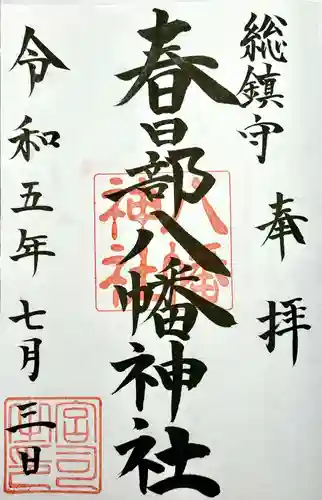 奉拝
総鎮守
春日部八幡神社
八幡
神社
令和五年七月三日